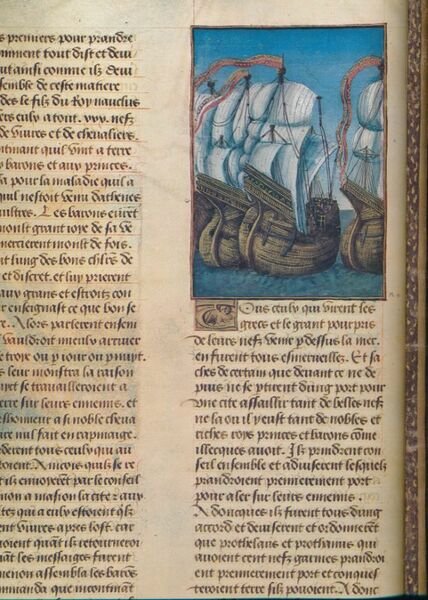 s premiers pour prandre
mment tout dist et devi
ut ainsi comme ilz devi
semble de ceste matiere
des le filz du Roy nauclus
ers cely a tout .xxv. nefz
de vivres et de chevaliers.
ntmant quil vint a terre
s barons et aux princes.
sa pour la maladie quil a
quil nestoit venu dathenes
aultres. Les barons eurent
moult grant ioie de sa ve
mercierent moult de fois.
nt lung des bons chlrs de
et discret. et luy prierent
aux grans et estroiz con
r enseignast ce que bon se
e. Alors parlerent ensem
vauldroit mieulx arriver
e troye ou p iour ou p nuyt.
s leur monstra la raison
et se travailleroient a
erre sur leurs ennemis. et
lhoment a si noble cheva
ce nul fait en
derent tous ceulx qui au
roient. Aincois quilz se re
t ilz envoierent par le conseil
non a masion la cite z aux
tez qui a culx estoient qlz
nt vivres apres lost. car
voient quant ilz retourneroi
quant les messaiges furent
menon assembla les barons
mmanda que incontinant
Tous ceulx qui virent les
grecs et le grant pourpris
de leurs nefz venir p dessus la mer.
en furent tous esmerveillez. Et sa
ches de certain que devant ce ne de
puis ne se ptirent dung port pour
une cite assaillir tant de belles nefz
ne la ou il y eust tant de nobles et
riches roys princes et barons come
illecques avoit. Ilz prindrent con
seil ensemble et adviserent lesquelz
prandroient premierement port
pour aler sur leurs ennemis.
Adoncques ilz furent tous dung
accord et deviserent et ordonnerent
que prothelaus et prothamis qui
avoient cent nefz garnies prandroi
ent premierement port et conquef
teroient terre silz povoient. Adonc